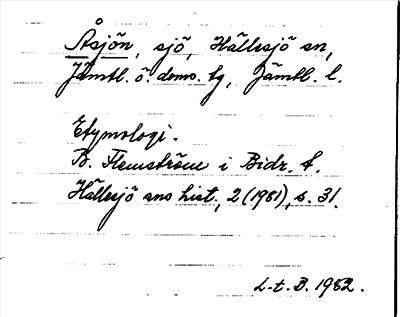 Åsjön, sjö, Hällesjö sn,
Jämtl. ö. doms. tg, Jämtl. l.
Etymologi.
B. Flemström i Bidr. t.
Hällesjö sns hist., 2 (1981), s. 31.
L-t. B. 1982.